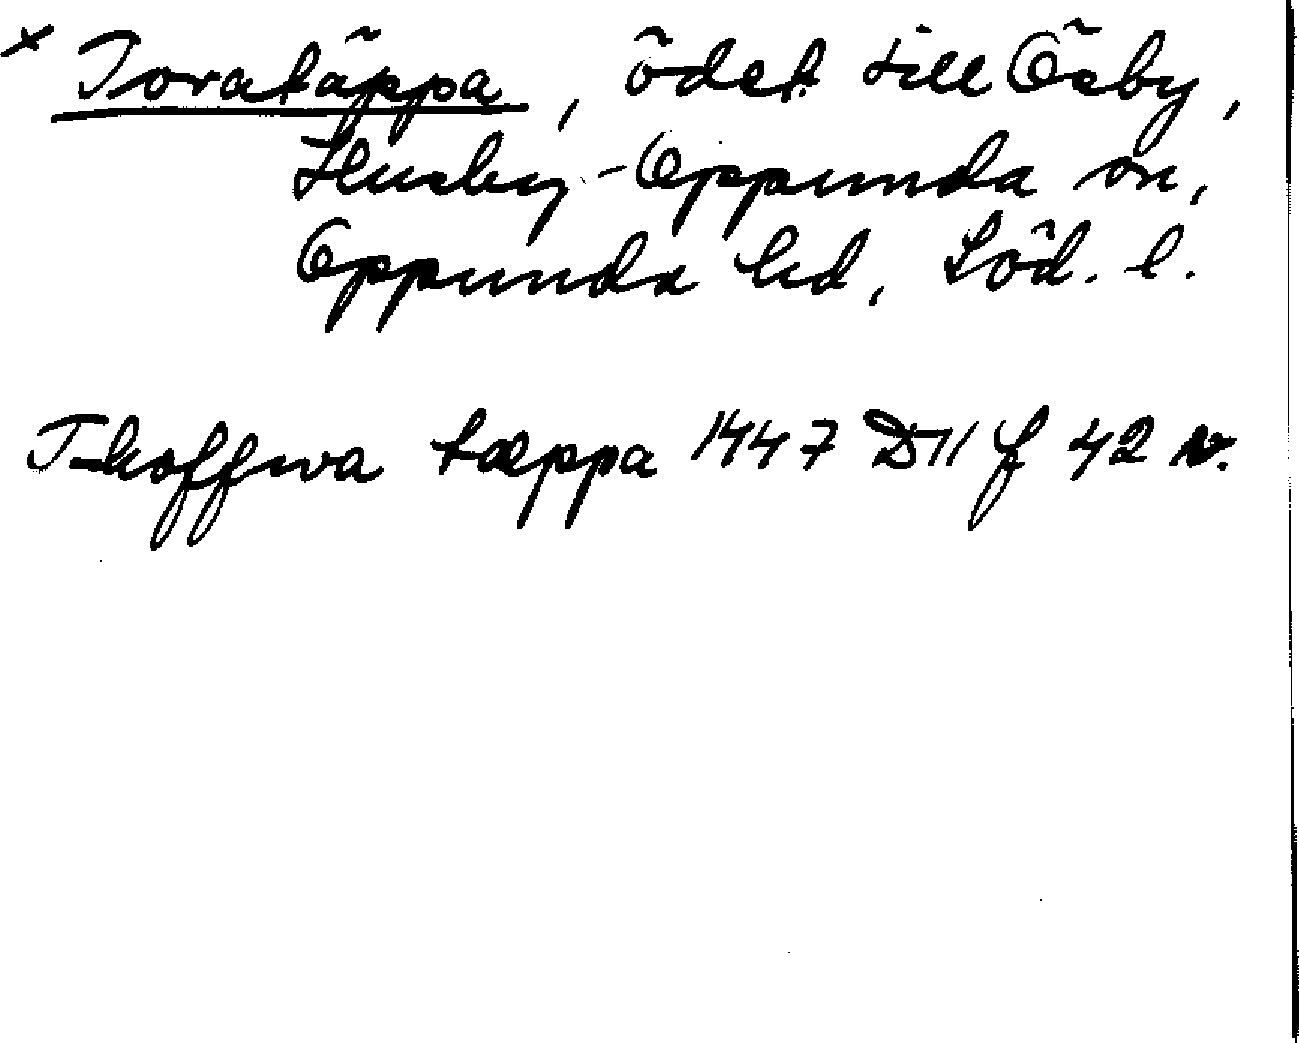 × Tovatäppa, ödet till Ösby,
Husby-Oppunda sn,
Oppunda hd, Söd. l.
Thoffwa tæppa 1447 D11 f 42 v.